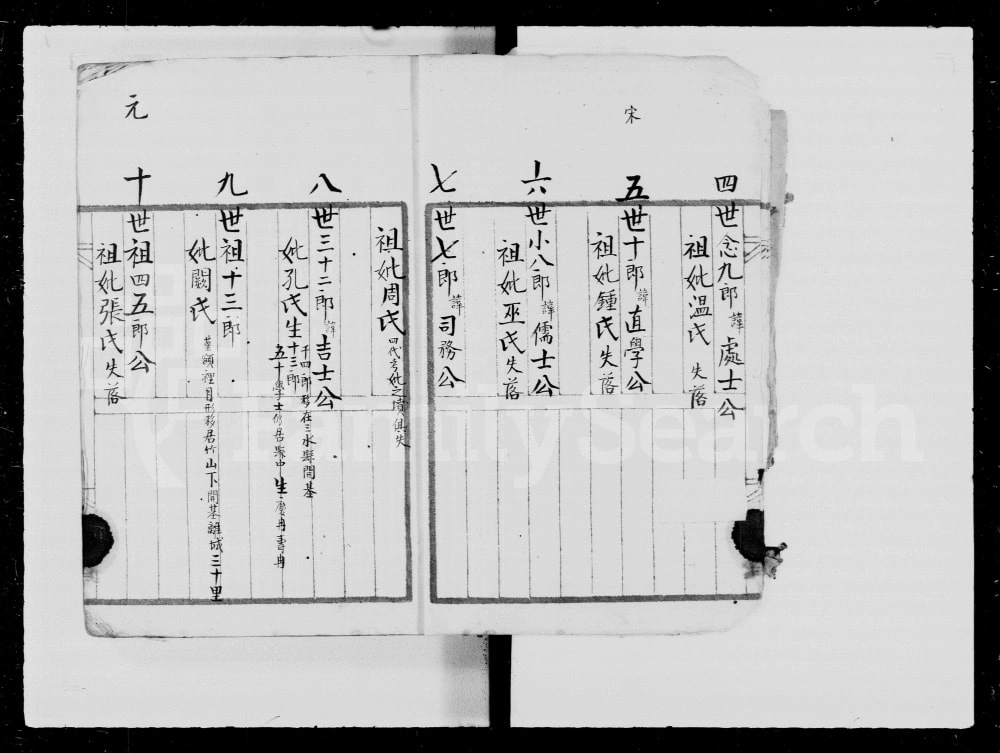 宋
四世念九郎諱處士公
祖妣温氏失落
五世十郎諱直學公
祖妣鍾氏失落
六世小八郎諱儒士公
祖妣巫氏失落
七世七郎諱司務公
祖妣周氏四代考妣之墳俱失
八世三十二郎諱吉士公
妣孔氏生十三郎
十四郎移在三水縣開基
五十學士移居縣中生慶冉壽冉
九世祖十三郎
妣闕氏
裡目形移居竹山下開基離城三十里
元
十世祖四五郎公
祖妣張氏失落
FamilySearch